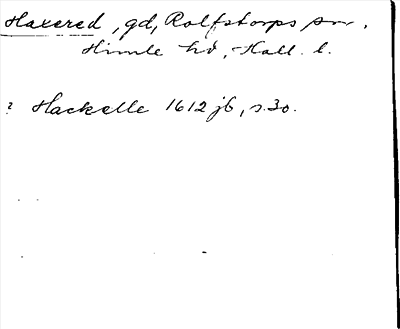 Haxered, gd, Rolfstorps sn.
Himle hd, Hall. l.
? Hackelle 1612 jb, s. 30.